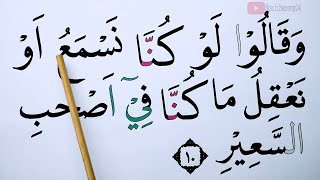 وَقَالُوْا لَوْ كُنَّا نَسْمَعُ اَوْ
نَعْقِلُ مَا كُنَّا فِيْٓ اَصْحٰبِ
السَّعِيْرِ ١٠